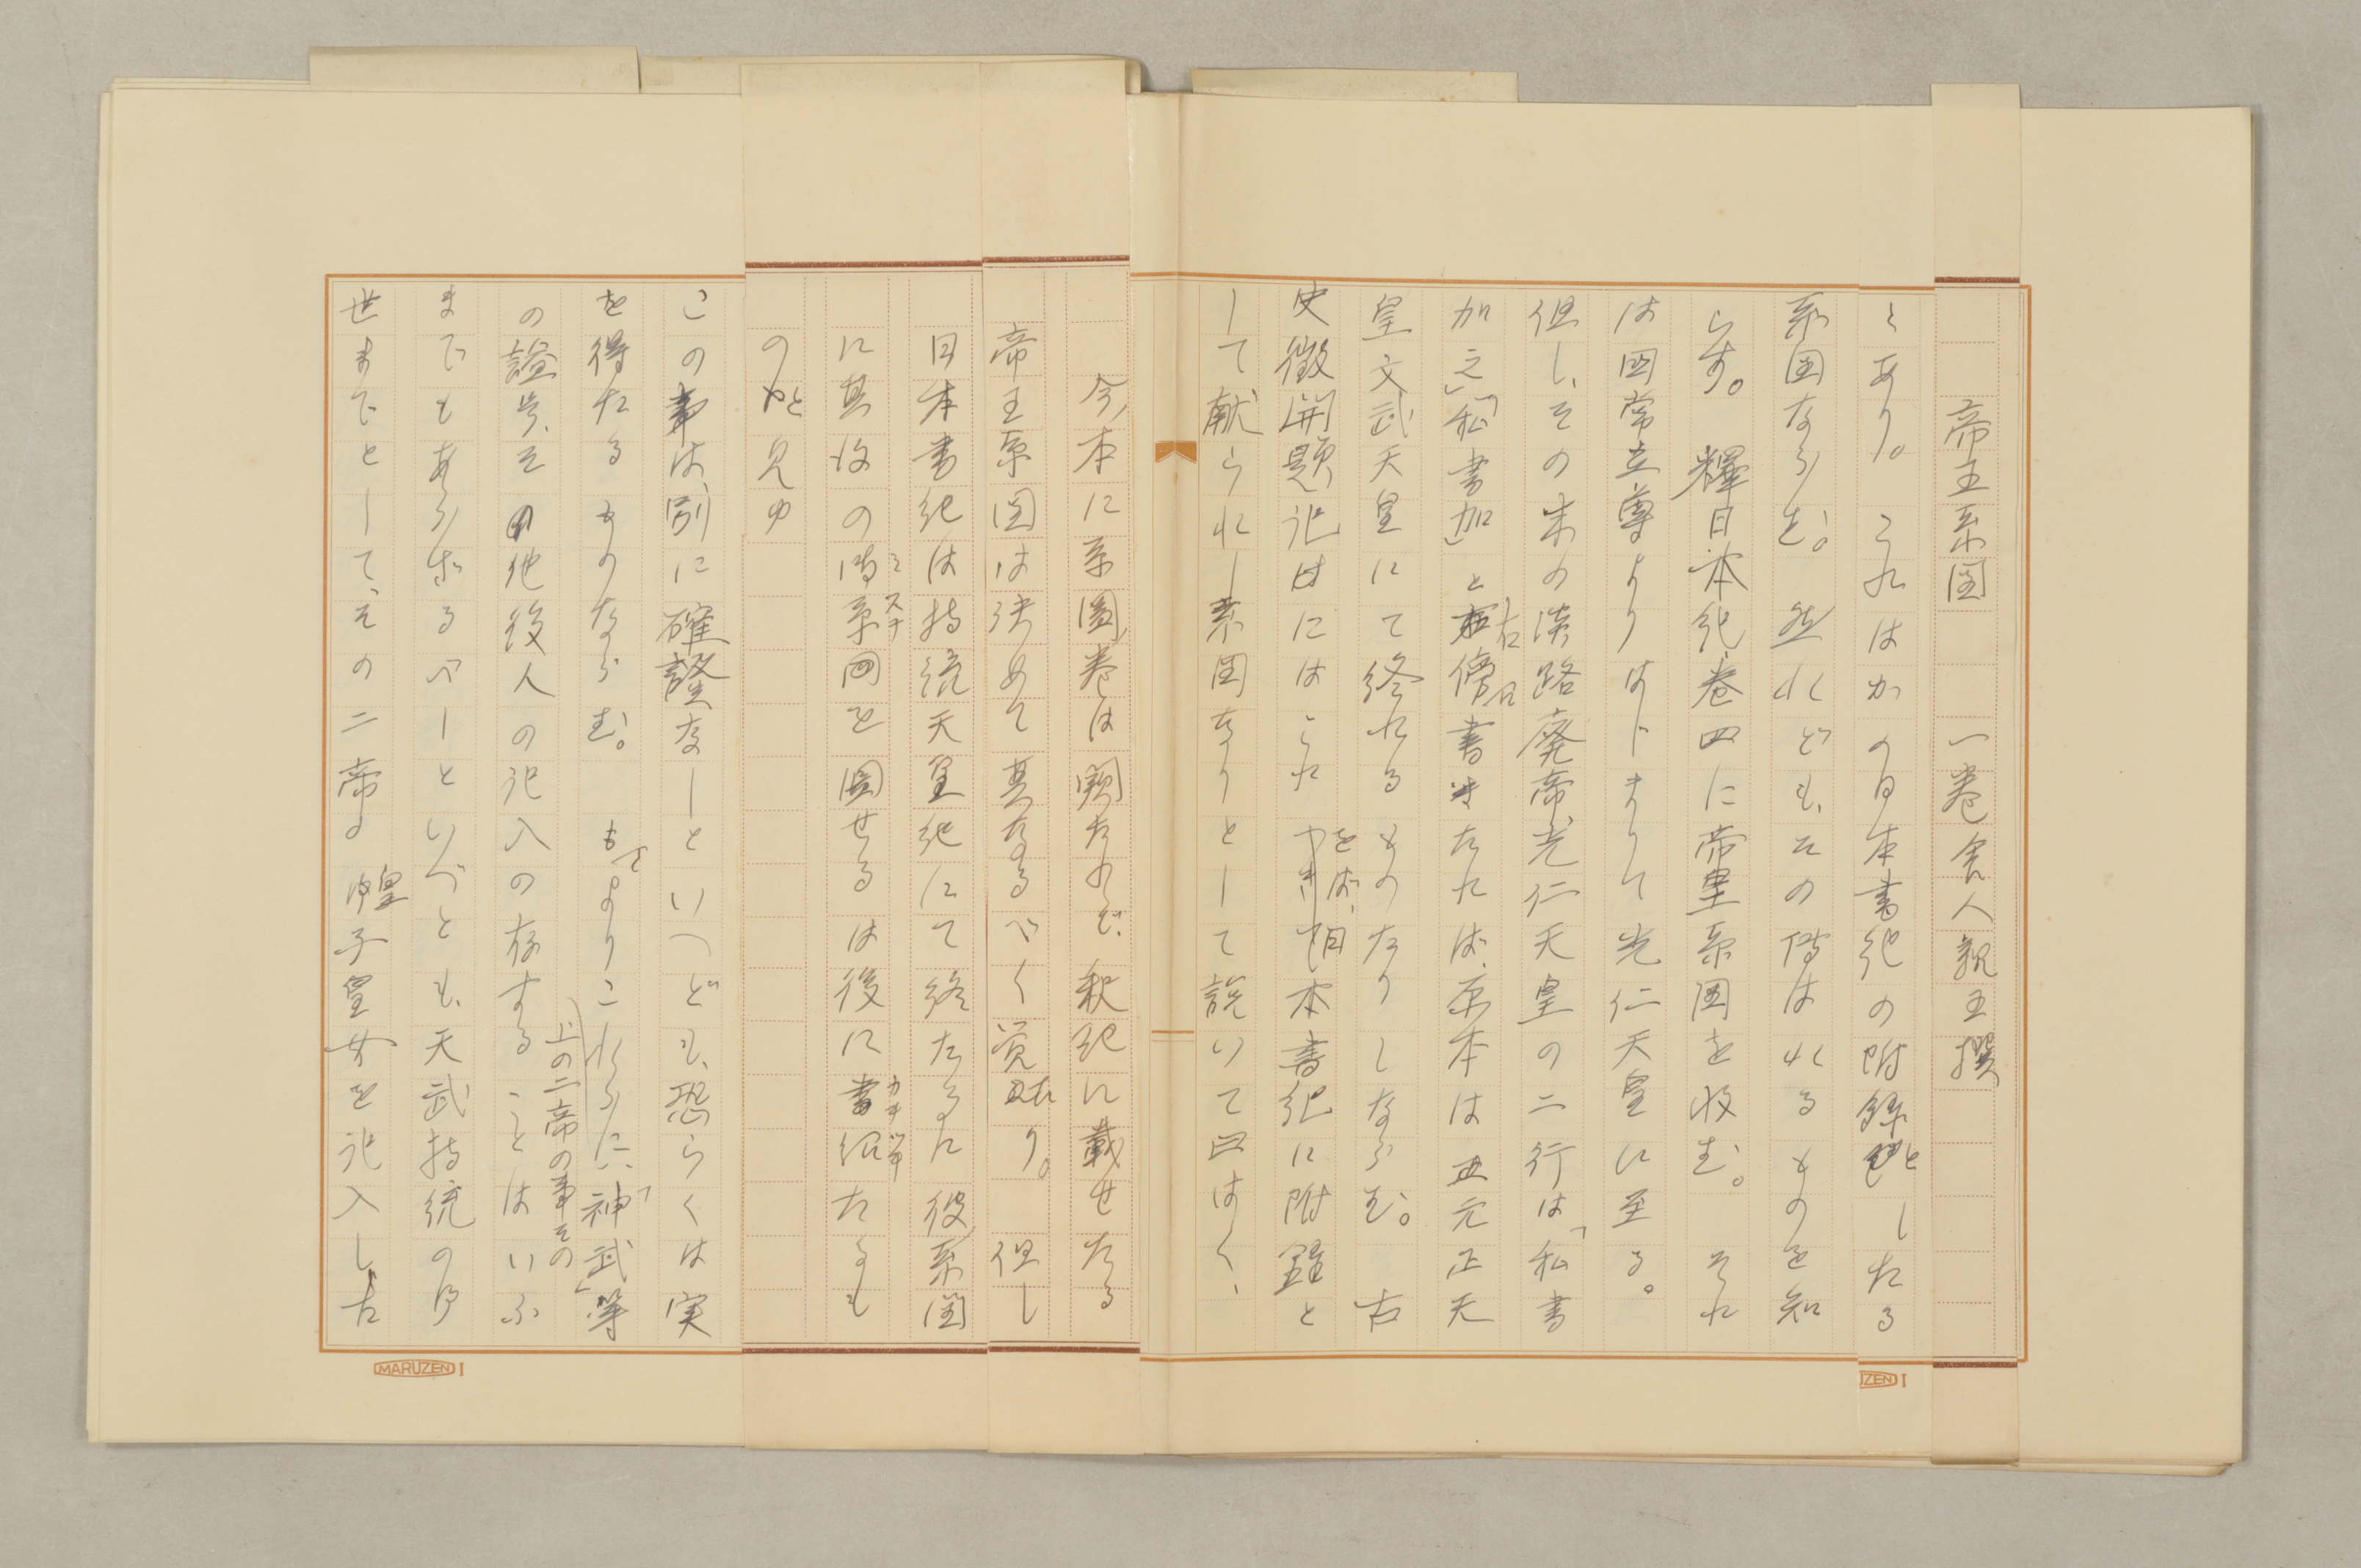 帝王系図　一巻　舎人親王撰
とあり。これはかの日本書紀の附録としたる
系図ならむ。然れども、その傳はれるものを知
らず。釋日本紀、巻四に帝皇系図を収む。それ
は国常立尊よりはじまりて光仁天皇に至る。
但し、その末の淡路廃帝、光仁天皇の二行は「私書
加之」「私書加」と右傍に書きたれば、原本は元正天
皇文武天皇にて終れるものなりしならむ。古
史徴開題記にはこれをば、日本書紀に附録と
して献られし系図なりとして説いて曰はく、
今本に系圖巻は闕たれど、釈紀に載せたる
帝王系図は決めて其なるべく覚たり。但し
日本書紀は持統天皇紀にて終たるに彼系図
に其後の御系図を図せるは後に書紹たるも
のと見ゆ
この事は、別に確證なしといへども、恐らくは実
を得たるものならむ。もとよりこれらに、「神武」等
の謚号、その他後人の記入の存することはいふ
上の二帝の事その
までもあらざるべしといへども、天武持統の御
世までとして、その二帝の皇子皇女を記入した
MARUZEN I
ZEN I